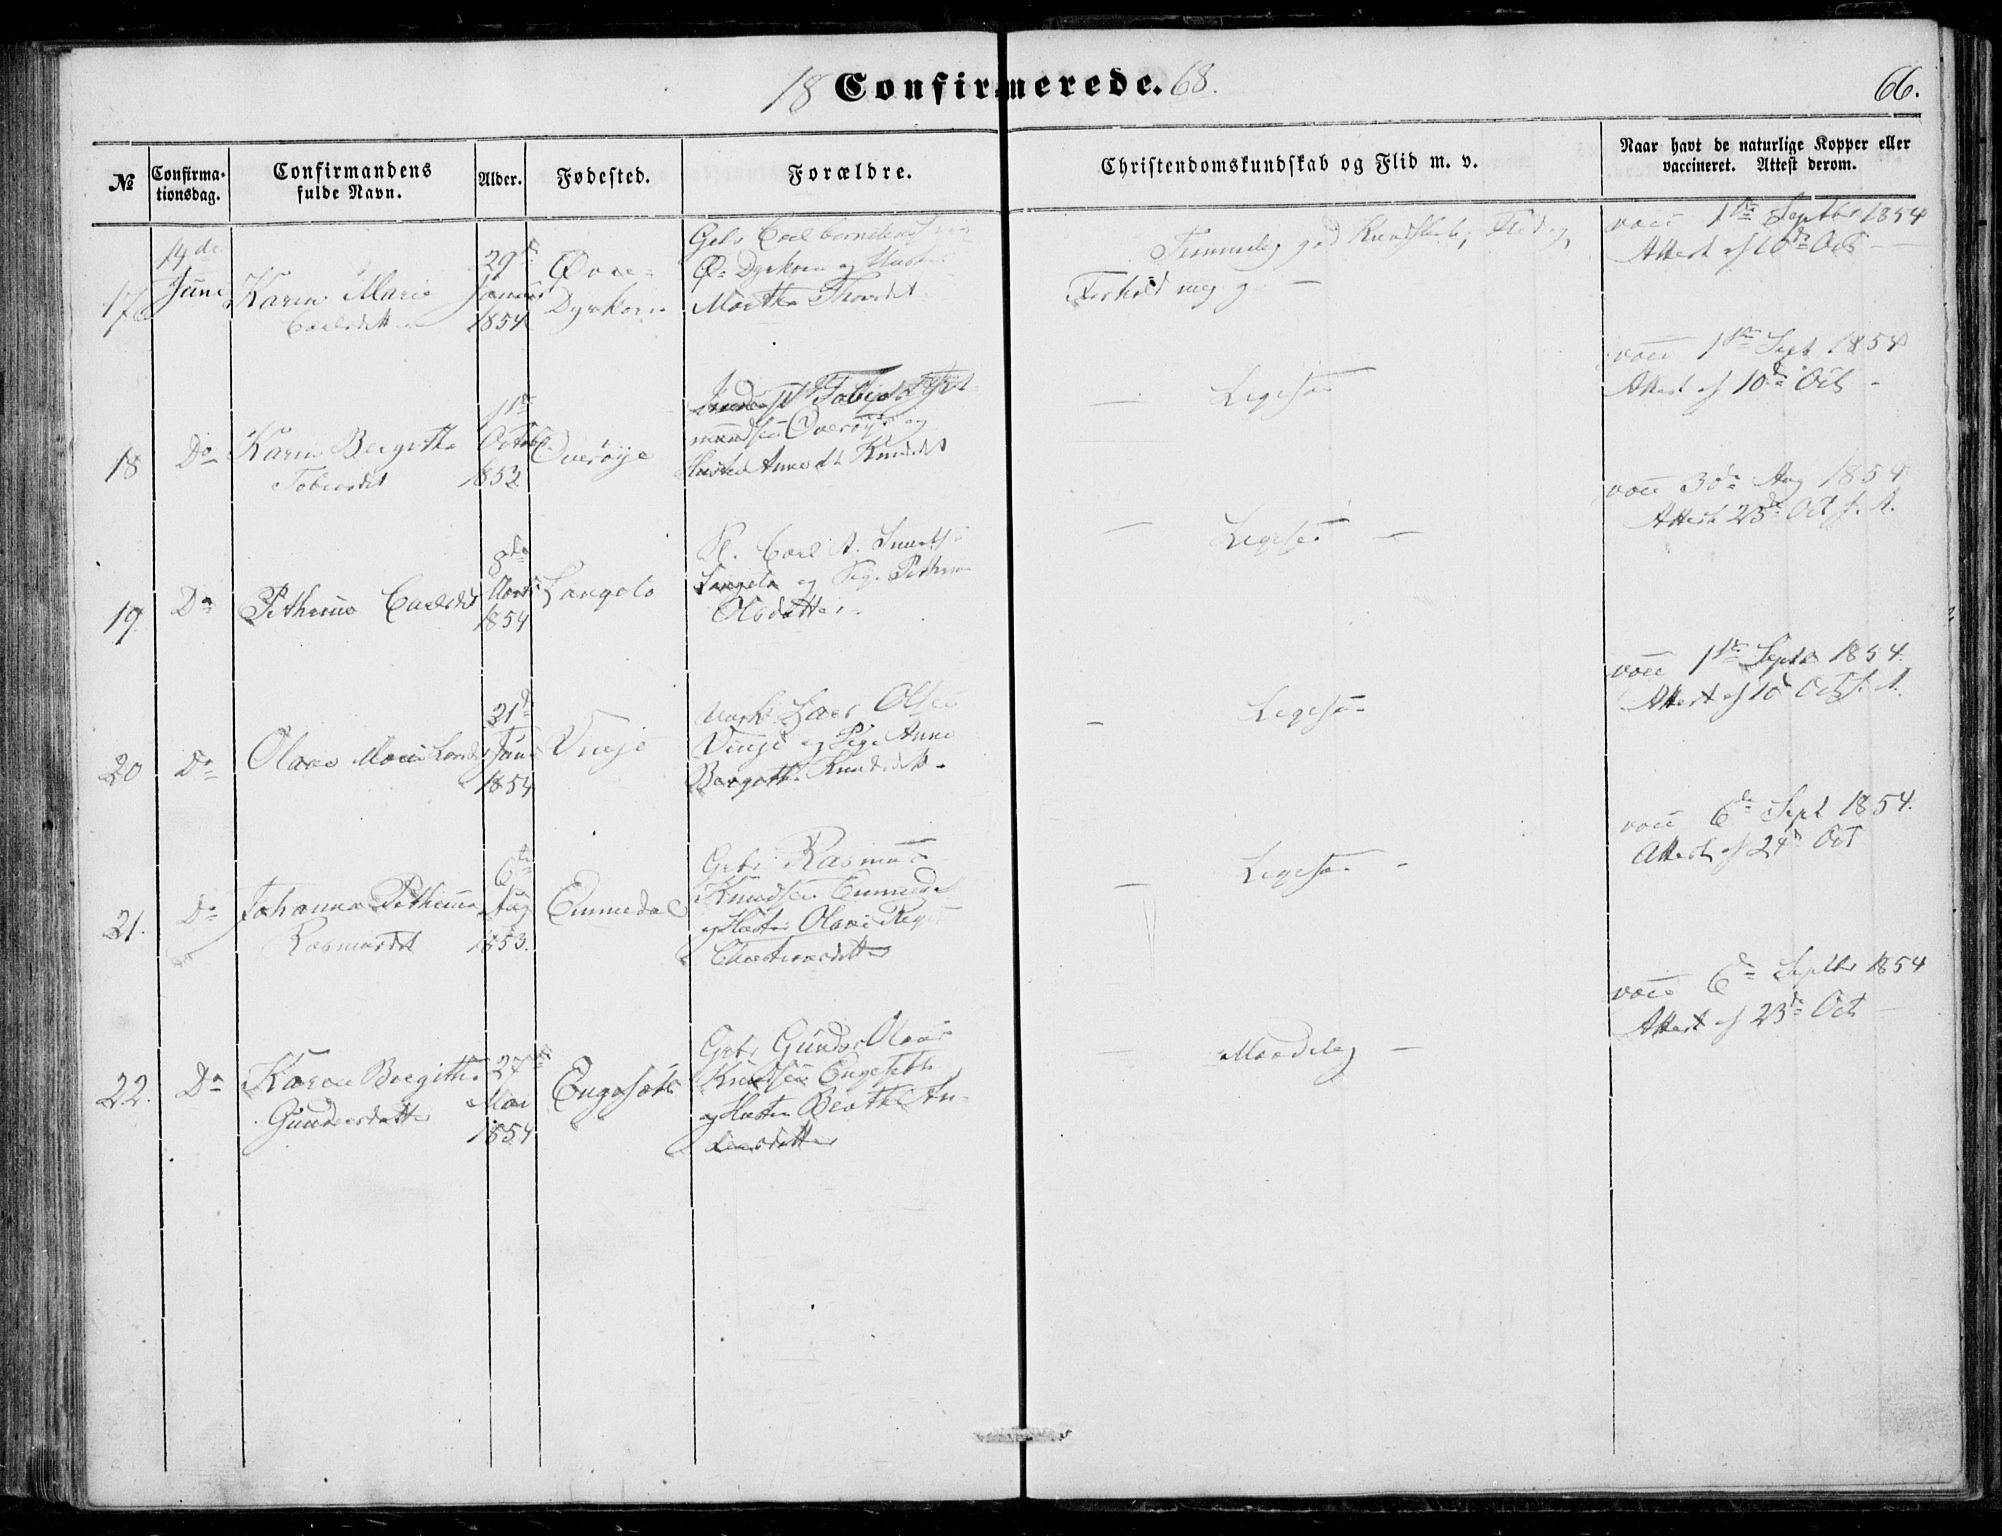 18 Confirmerede. 68.
66.
№
Confirma-
tionsdag.
Confirmandens
fulde Navn.
Alder.
Fødested.
Forældre.
Christendomskundskab og Flid m. v.
Naar havt de naturlige Kopper eller
vaccineret. Attest derom.
17
14de
Juni
Karen Marie
29de
Januar
1854
Øvre-
Dyrkorn
Gbr Carl
Dyrkorn og Hustru
Marthe
Temmelig god Kundskab, Flid og
Forhold meg. g.
vacc 1ste Septbr 1854
Attest af 10de Oct
18
Do
Karen Bergithe
Tobiasdt
1ste
Octob
1853
Overøye
Overøye og
Hustru Anne Knudsdt
Ligesaa
vacc 1ste Sept 1854
Attest af 10de Oct
19
Do
Pethrine Carlsdt
8de
Marts
1854
Langelo
Carl A.
Langelo og Pig. Pethrine
Olsdatter
Ligesaa
vacc 30de Aug 1854
Attest 23de Oct s. A.
20
Do
Olave Marie
21de
Juni
1854
Vinje
Lars Olsen
Vinje og Pige Anne
Bergithe Knudsdt
Ligesaa
vacc 1ste Septbr 1854.
Attest af 10de Oct s. A.
21.
Do
Johanna Pethrine
Rasmusdt
6te
Aug
1853.
Emmedal
Gbr Rasmus
Knudsen Emmedal
og Hustru Olave
Christiansdatter
Ligesaa
vacc 6te Sept 1854.
Attest af 24de Oct
22.
Do
Karen Bergithe
Gundersdatter
27de
Mai
1854
Engesæth
Gbr Gunder Olaus
Knudsen Engeseth
og Hustru Berthe An-
dersdatter
Maadelig
vacc 6te Septbr 1854
Attest af 23de Oct